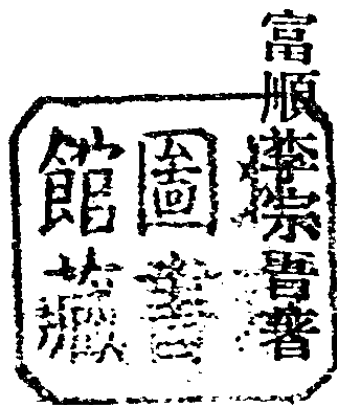 富順李宗吾著
圖書
館藏